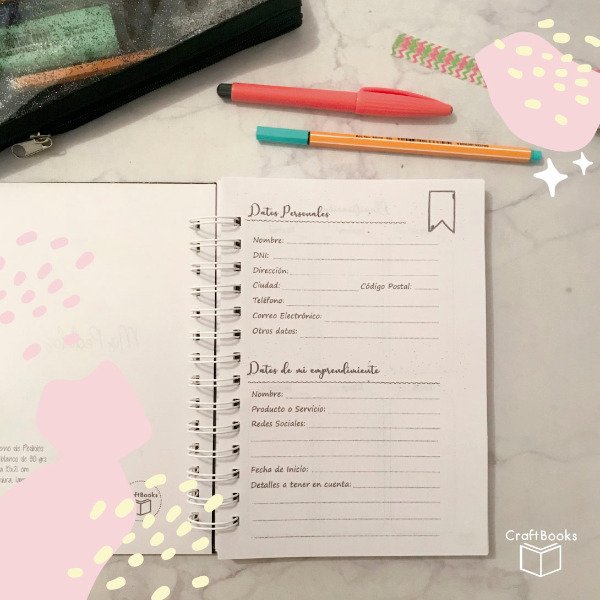 CraftBooks
Datos Personales
Nombre:
DNI:
Dirección:
Ciudad: Código Postal:
Teléfono:
Correo Electrónico:
Otros datos:
Datos de mi emprendimiento
Nombre:
Producto o Servicio:
Redes Sociales:
Fecha de Inicio:
Detalles a tener en cuenta:
de Pedidos
blancos de 80 grs
15x21 cm
CraftBooks